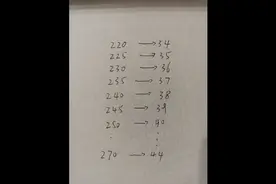 220 → 34
225 → 35
230 → 36
235 → 37
240 → 38
245 → 39
250 → 40
: :
270 → 44